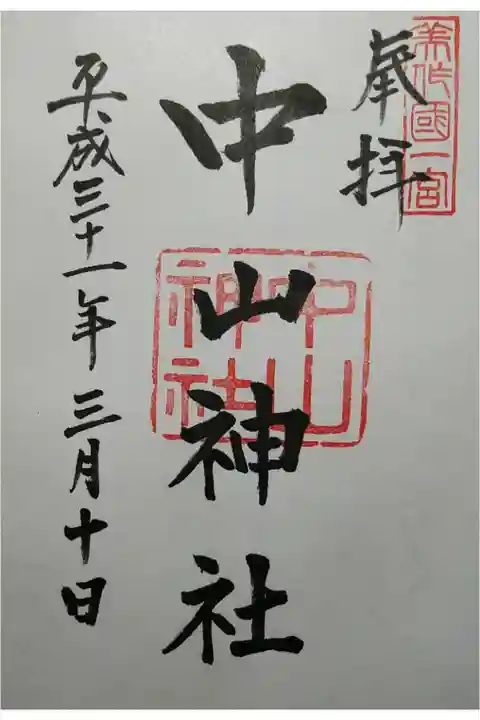 美作國一宮
奉拝
中山神社
中山
神社
平成三十一年三月十日